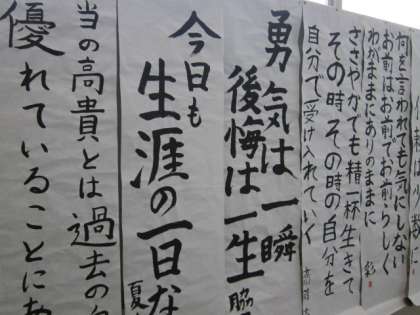 何を言われても気にしない
お前はお前でお前らしく
わがままにありのままに
ささやかでも精一杯生きて
その時その時の自分を
自分で受け入れていく
勇気は一瞬
後悔は一生
今日も
生涯の一日な
夏
当の高貴とは過去の
優れていることにあ